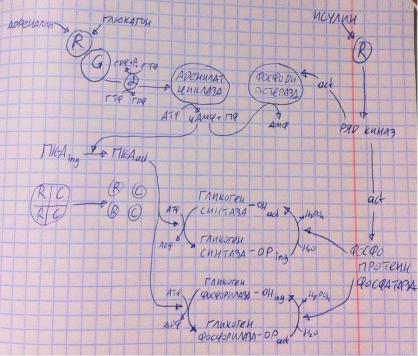 АДРЕНАЛИН
ГЛЮКАГОН
ИСУЛИН
R
G
R
ГТФ
α
ГТФ
ГДФ
АДЕНИЛАТ
ЦИКЛАЗА
ФОСФОДИ
ЭСТЕРАЗА
act
АТФ
цАМФ+ПФ
АМФ
РЯД КИНАЗ
ПКАing
ПКАact
act
R C
R C
R C
R C
АТФ
АДФ
ГЛИКОГЕН
СИНТАЗА-OHact
H3PO4
ГЛИКОГЕН
СИНТАЗА-OPing
H2O
ФОСФО
ПРОТЕИН
ФОСФАТАЗА
АТФ
АДФ
ГЛИКОГЕН
ФОСФОРИЛАЗА-OH
H3PO4
ГЛИКОГЕН
ФОСФОРИЛАЗА-OPact
H2O